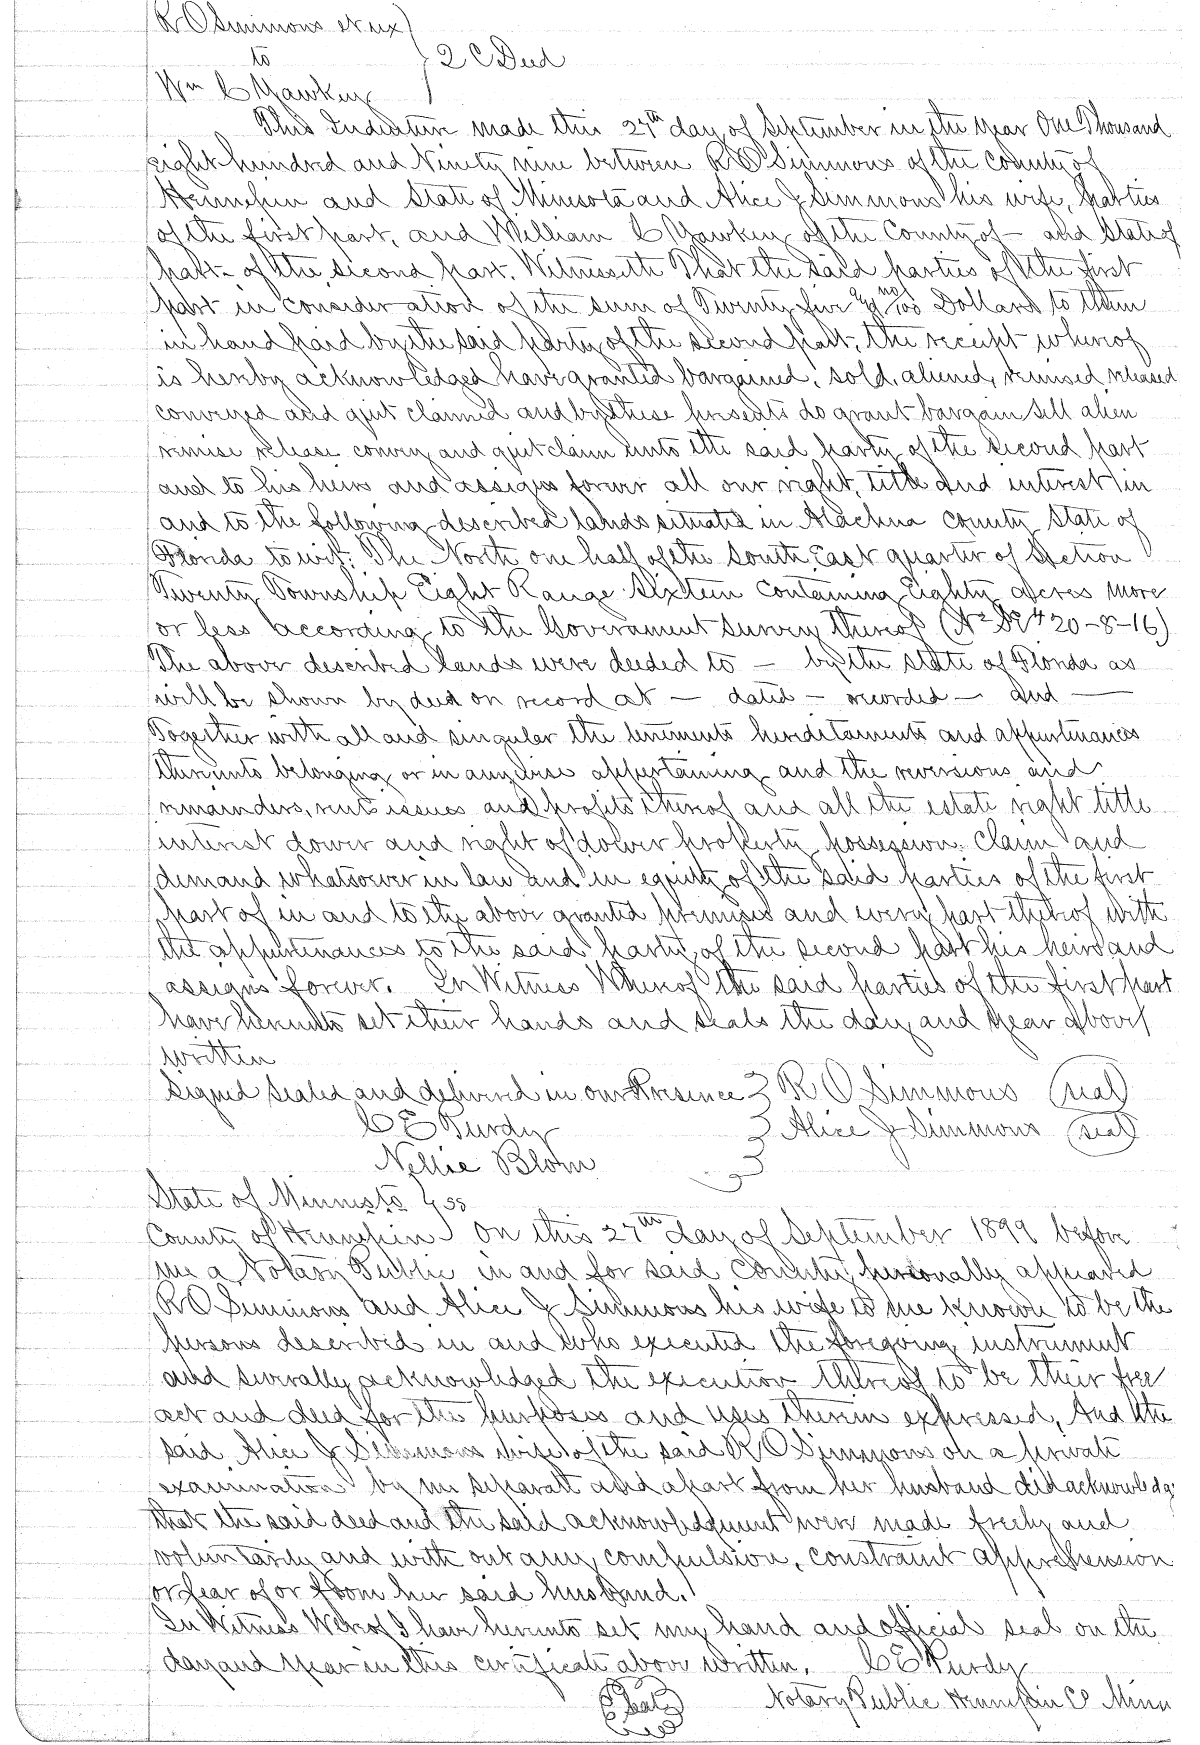 R O Simmons et ux
to
Wm C Yawkey
} Q C Deed
This Indenture made this 27th day of September in the year One Thousand
eight hundred and Ninety nine between R O Simmons of the County of
Hennepin and State of Minesota and Alice J Simmons his wife, parties
of the first part, and William C Yawkey of the County of — and State of
part- of the second part. Witnesseth That the said parties of the first
part in consideration of the sum of Twenty five & no/100 Dollars to them
in hand paid by the said party of the second part, the receipt whereof
is hereby acknowledged have granted bargained, sold, aliened, remised, released
conveyed and quit claimed and by these presents do grant bargain sell alien
remise release convey and quit claim unto the said party of the second part
and to his heirs and assigns forever all our right, title and interest in
and to the following described lands situated in Alachua County State of
Florida to wit: The North one half of the South East quarter of Section
Twenty Township Eight Range Sixteen containing Eighty acres more
or less according to the Government Survey thereof (N2 SE4 20-8-16)
The above described lands were deeded to — by the State of Florida as
will be shown by deed on record at — dated — recorded — and —
Together with all and singular the tenements hereditaments and appurtenances
thereunto belonging or in anywise appertaining and the reversions and
remainders, rents issues and profits thereof and all the estate right title
interest dower and right of dower property possession, claim and
demand whatsoever in law and in equity of the said parties of the first
part of in and to the above granted premises and every part thereof with
the appurtenances to the said party of the second part his heirs and
assigns forever. In Witness Whereof the said parties of the first part
have hereunto set their hands and seals the day and year above
written
Signed sealed and delivered in our Presence } R O Simmons (seal)
C E Purdy } Alice J Simmons (seal)
Nellie Blom
State of Minnesota } ss
County of Hennepin } On this 27th day of September 1899 before
me a Notary Public in and for said County, personally appeared
R O Simmons and Alice J Simmons his wife to me known to be the
persons described in and who executed the foregoing instrument
and severally acknowledged the execution thereof to be their free
act and deed for the purposes and uses therein expressed, And the
said Alice J Simmons wife of the said R O Simmons on a private
examination by me separate and apart from her husband did acknowledge
that the said deed and the said acknowledgment were made freely and
voluntarily and with out any compulsion, constraint apprehension
or fear of or from her said husband.
In Witness Wereof I have hereunto set my hand and official seal on the
day and year in this certificate above written. C E Purdy
(Seal) Notary Public Hennepin Co Minn